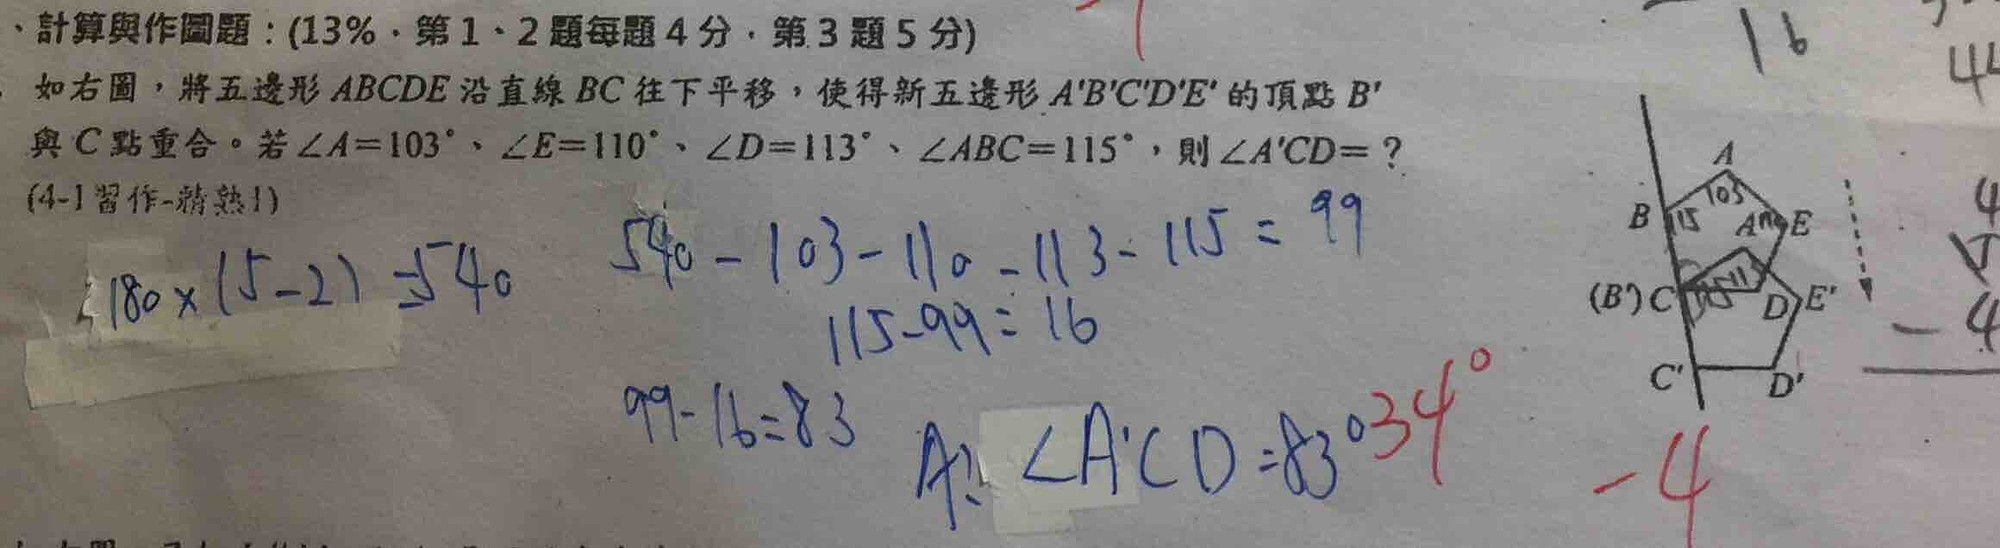 、計算與作圖題：(13%．第1、2題每題4分．第3題5分)
如右圖，將五邊形ABCDE沿直線BC往下平移，使得新五邊形A'B'C'D'E'的頂點B'
與C點重合。若∠A＝103°、∠E＝110°、∠D＝113°、∠ABC＝115°，則∠A'CD＝？
(4-1習作-精熟1)
180×(5-2)=540
540-103-110-113-115=99
115-99=16
99-16=83
A: ∠A'CD=83°
34°
-4
A
103
B
115
A
110
E
(B')
C
113
D
E'
C'
D'
16
44
4
5
-4